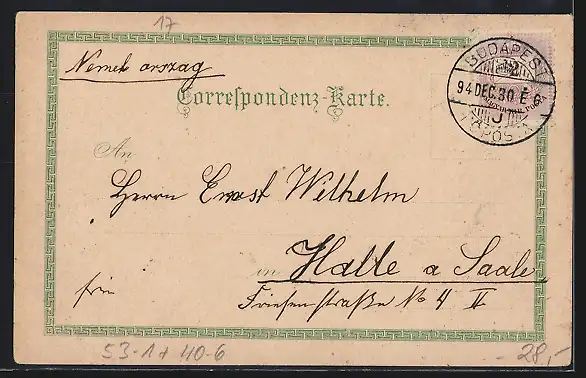 17
Nemet orszag
BUDAPEST
94 DEC. 30 E
Correspondenz-Karte.
An
Herrn Ernst Wilhelm
in Halle a Saale
frei
Friesenstraße No 4 II
53-1+40-6
28,-